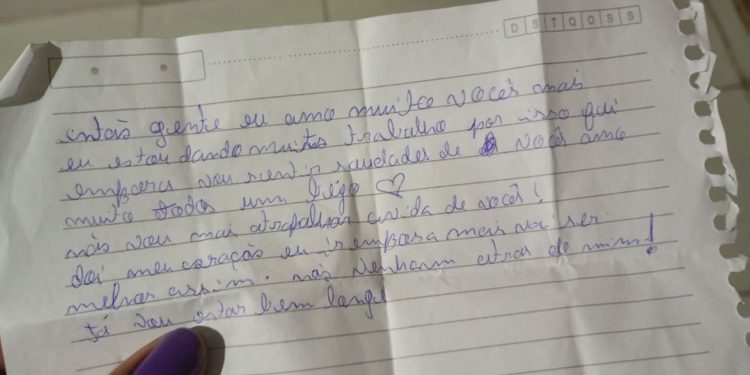 D S T Q Q S S
então gente eu amo muito vocês mais
eu estou dando muito trabalho por isso fui
embora vou sentir saudades de vocês amo
muito todos um bejo ♡
não vou mais atrapalhar a vida de vocês!
doi meu coração eu ir embora mais vai ser
melhor assim. não venham atras de mim!
já vou estar bem longe